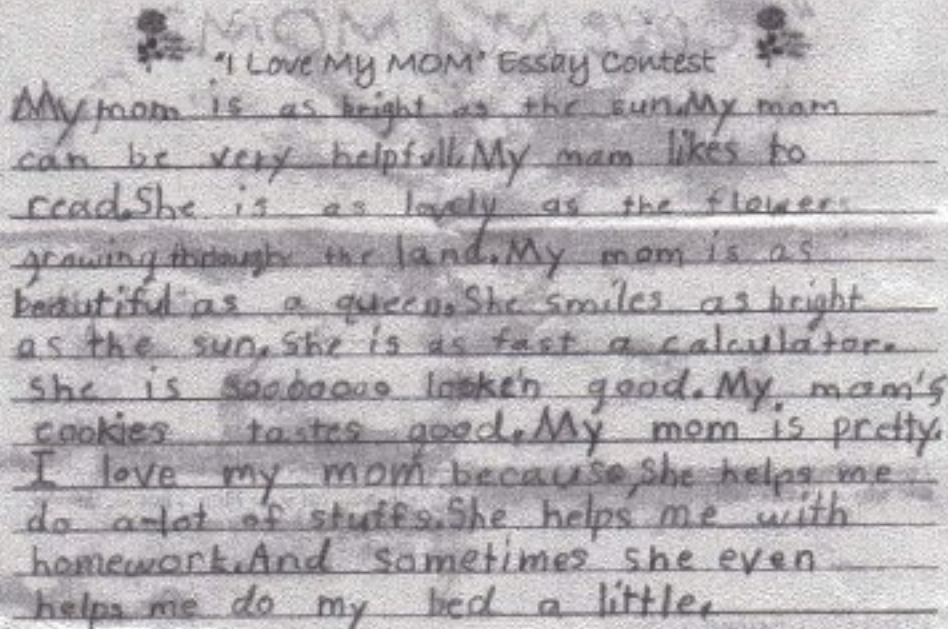 "I Love My MOM" Essay Contest
My mom is as bright as the sun.My mom
can be very helpfull.My mom likes to
read.She is as lovely as the flowers
growing through the land.My mom is as
beautiful as a queen.She smiles as bright
as the sun.She is as fast a calculator.
she is sooooooo looke'n good.My mom's
cookies tastes good.My mom is pretty.
I love my mom because,She helps me
do a-lot of stuffs.She helps me with
homework.And sometimes she even
helps me do my bed a little.